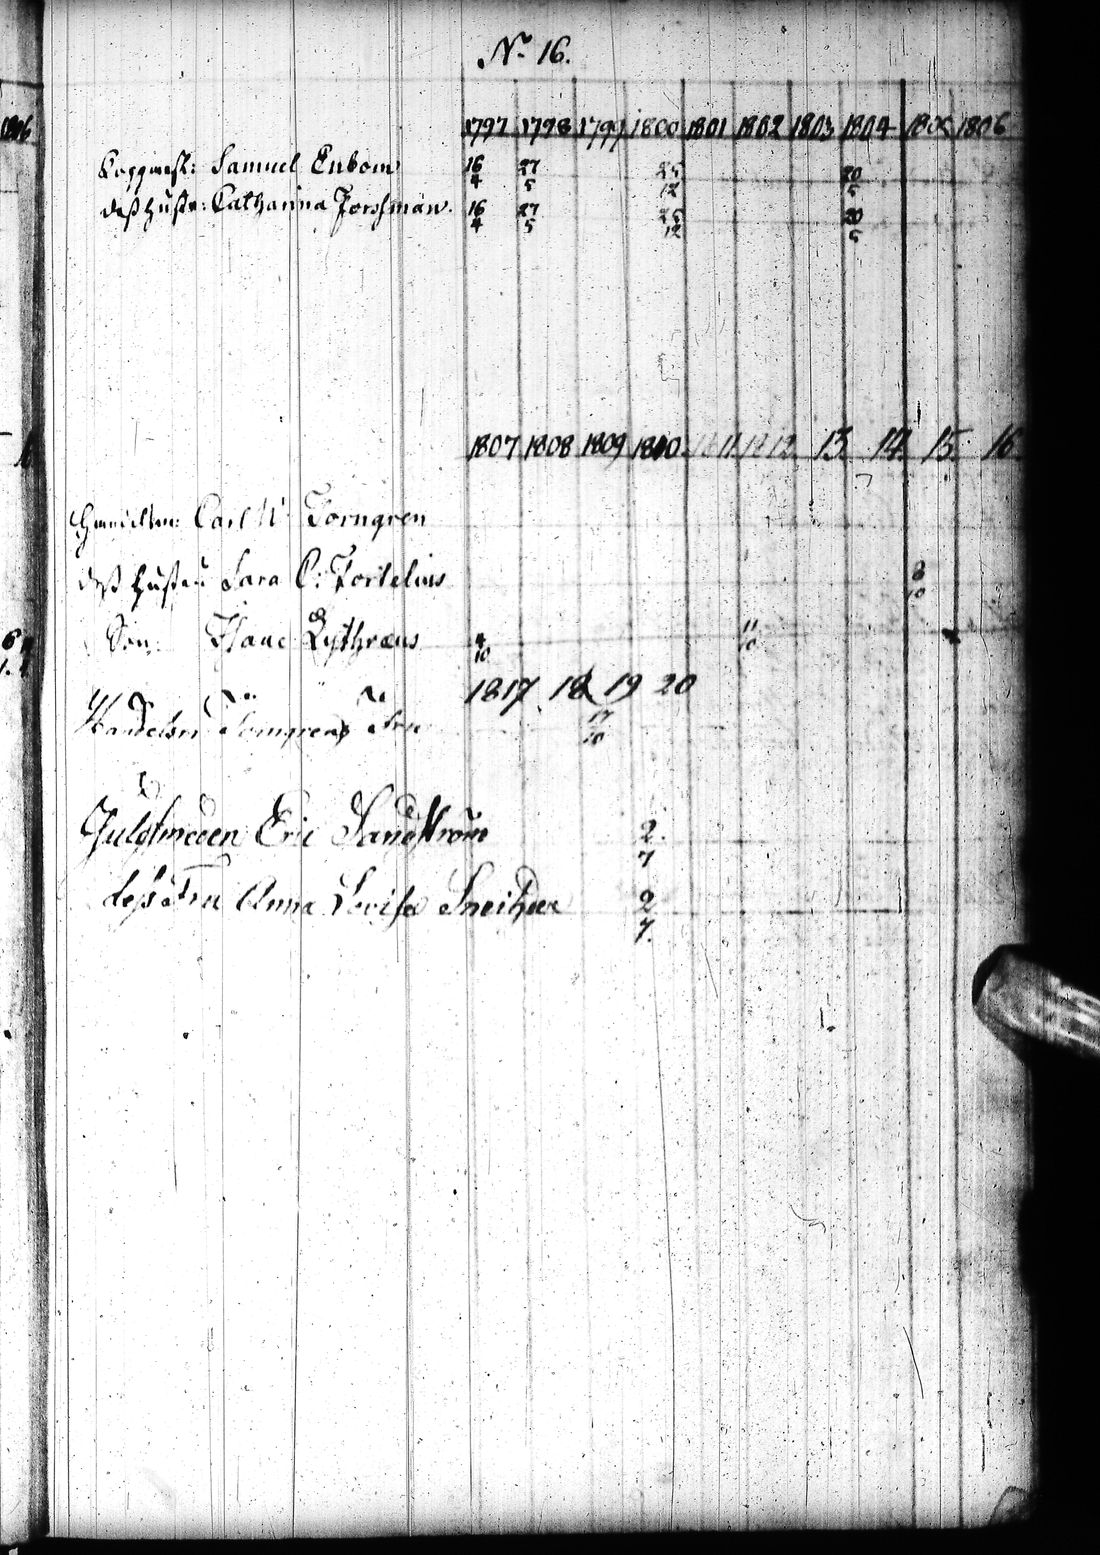 N:o 16.
1806
1797 1798 1799 1800 1801 1802 1803 1804 1805 1806
Samuel Enbom 16/4 27/5 25/12 20/5
Dess hustr: Catharina Forssman. 16/4 27/5 25/12 20/5
1807 1808 1809 1810 1811 1812. 13. 14. 15. 16.
Handelsm: Carl N. Torngren
Dess hustru Sara C: Fortelius 8/10
Son: Isaac Lythræus 4/10 11/10
1817. 18 19 20
Handelsm Törngrens Fru 17/10
Guldsmeden Eric Sandström 2./7
dess Fru Anna Lovisa 2/7.